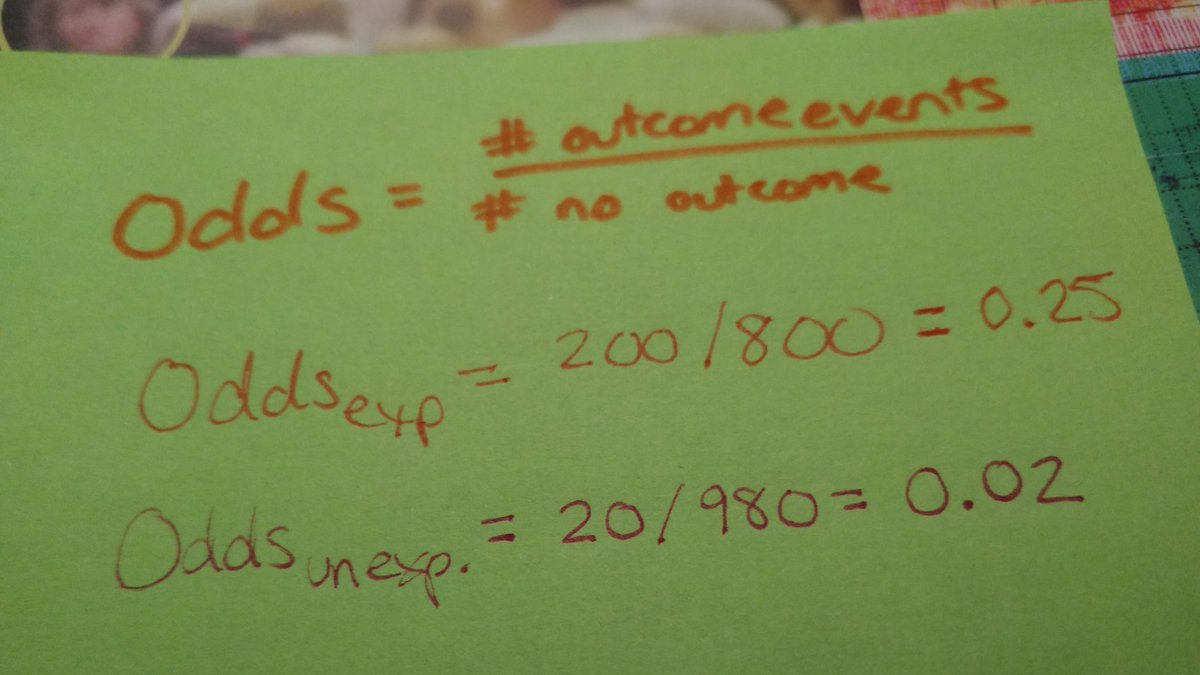 Odds = # outcome events
# no outcome
Odds exp = 200/800 = 0.25
Odds unexp. = 20/980 = 0.02